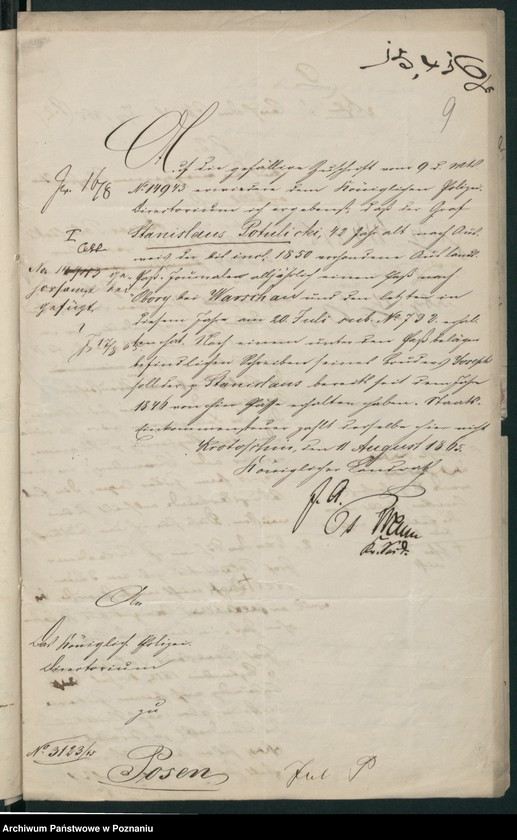 9
Auf die gefällige Zuschrift vom 9 d. Mts
No 14943 erwiedere dem Königlichen Polizei-
Directorium ich ergebenst, daß der Graf
Stanislaus Potulicki, 42 Jahr alt nach Aus-
weis der bis incl. 1850 vorhandenen Ausland-
Paß-Journale alljährlich einen Paß nach
Obory bei Warschau und den letzten in
diesem Jahre am 20. Juli sub. No 792 erhal-
ten hat. Nach einem unter den Paßbelägen
befindlichen Schreiben seines Bruders Joseph
soll der p. Stanislaus bereits seit dem Jahre
1846 von hier Pässe erhalten haben. Staats-
Einkommensteuer zahlt derselbe hier nicht
Krotoschin, den 11 August 1865.
Königlicher Landrath
J. A.
Jr. 16/8
I
gehorsamst bei
gefügt.
An
Das Königlich Polizei-
Directorium
zu
Posen
No 3123/65
Archiwum Państwowe w Poznaniu